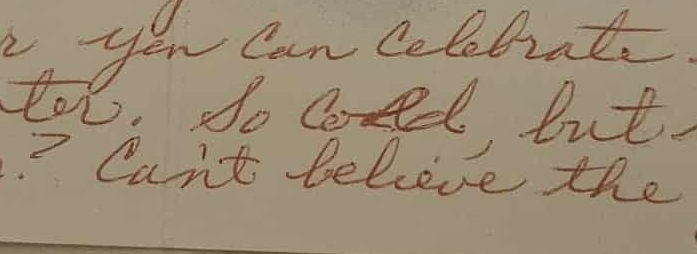 r you can celebrate.
ter. So cold, but
? Can't believe the